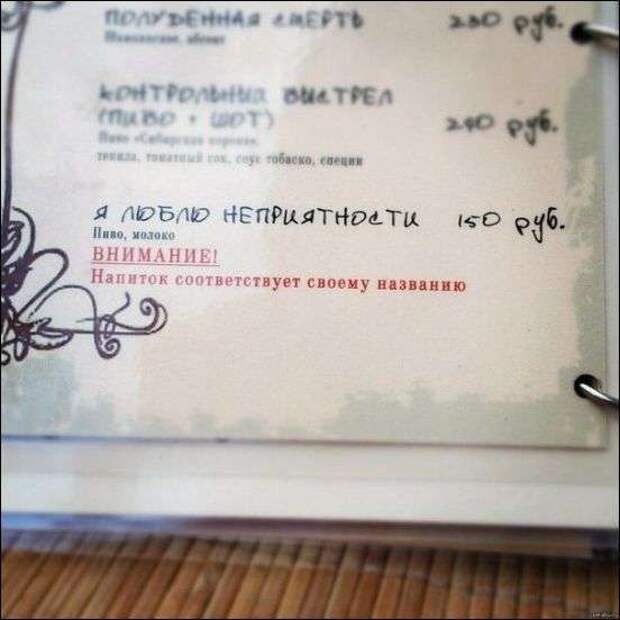 ПОЛУДЕННАЯ СМЕРТЬ 230 руб.
Шампанское, абсент
КОНТРОЛЬНЫЙ ВЫСТРЕЛ
(ПИВО + ШОТ) 240 руб.
Пиво «Сибирская корона»,
текила, томатный сок, соус тобаско, специи
Я ЛЮБЛЮ НЕПРИЯТНОСТИ 150 руб.
Пиво, молоко
ВНИМАНИЕ!
Напиток соответствует своему названию